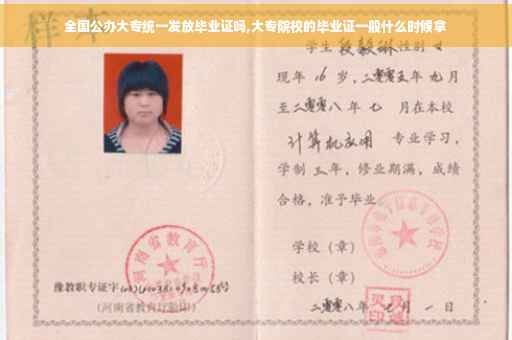 全国公办大专统一发放毕业证吗,大专院校的毕业证一般什么时候拿
样本
学生 段毅琳 性别 女
现年 16 岁,二零零五年 九月
至二零零八年 七 月在本校
计算机应用 专业学习,
学制 三 年,修业期满,成绩
合格,准予毕业
学校(章)
校长(章)
河南省教育厅
豫教职专证字
(河南省教育厅验印)
二零零八年 七 月 一 日